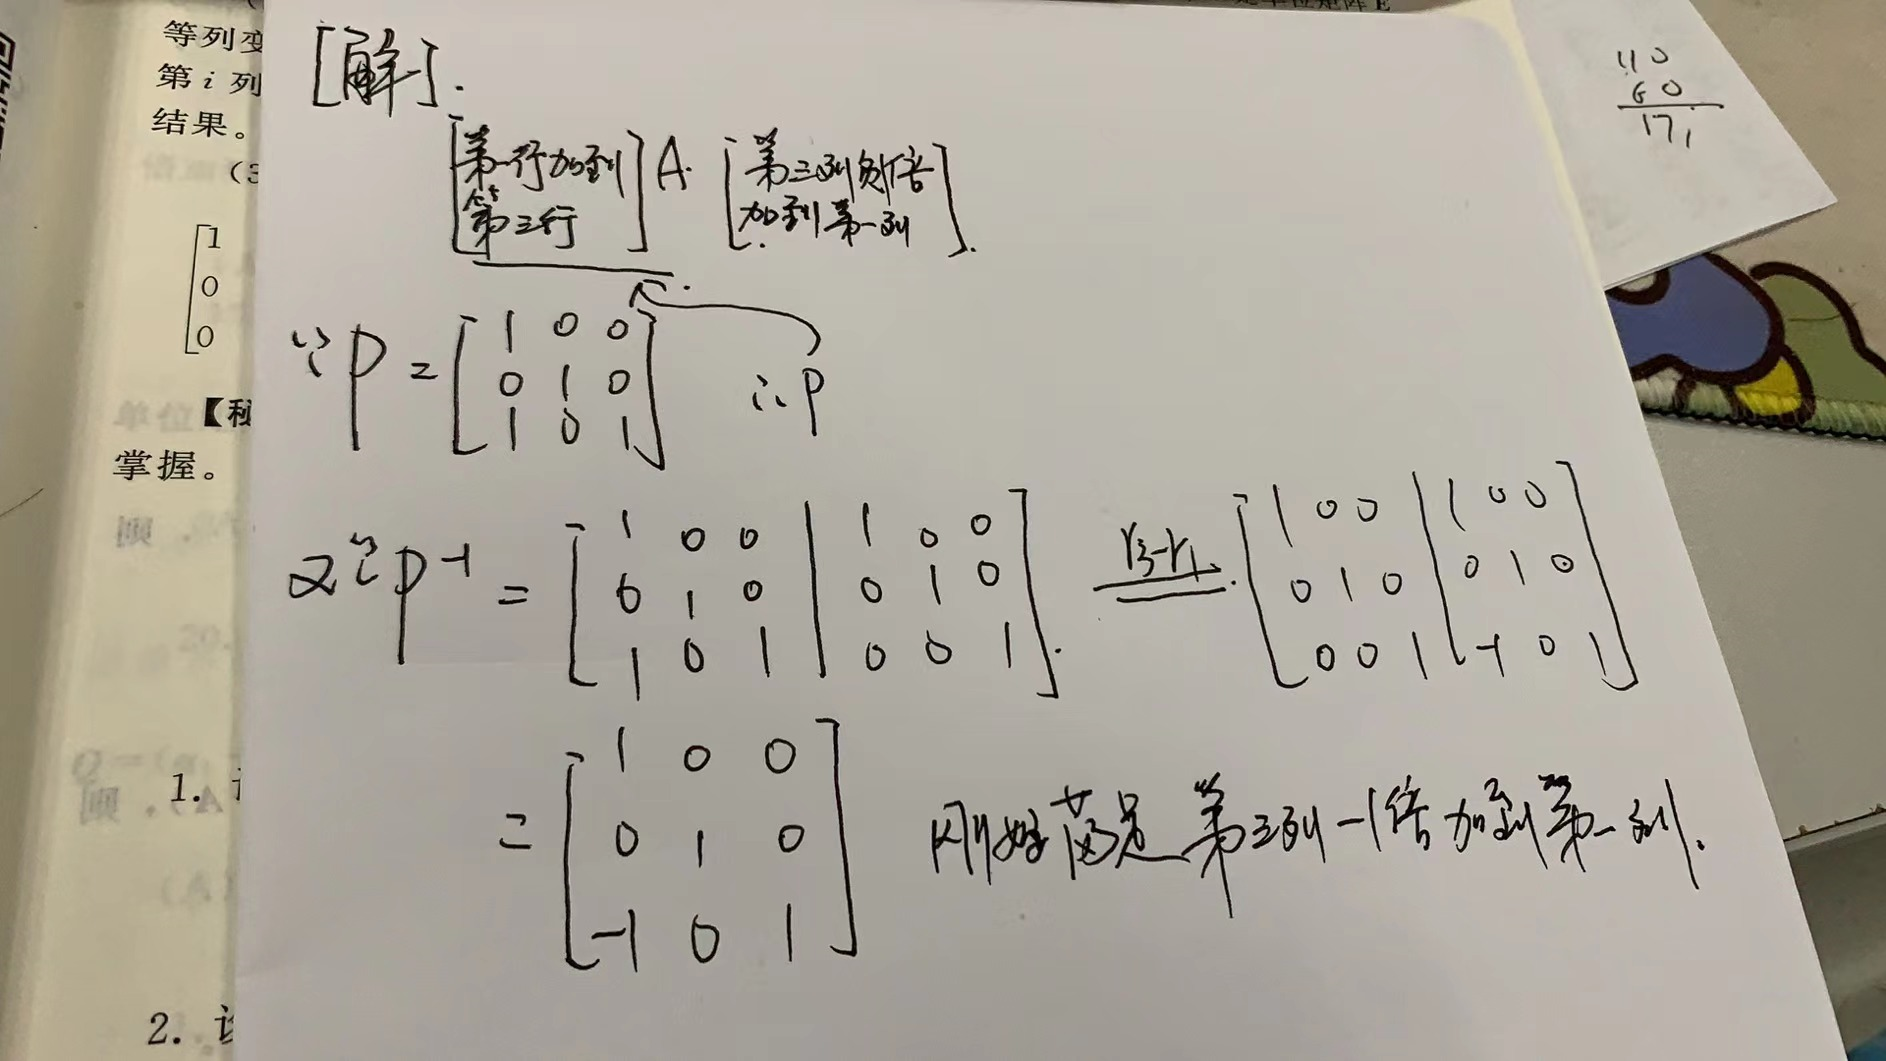 等列变
第 i 列
结果。
(3
[1
0
0
【秘
掌握。
1. 设
2. 设
[解].
[第一行加到第三行] A. [第三列负倍加到第一列].
∵ P = [1 0 0
0 1 0
1 0 1] ∴ P
又∵ P⁻¹ = [1 0 0 | 1 0 0
0 1 0 | 0 1 0
1 0 1 | 0 0 1]. r₃-r₁ [1 0 0 | 1 0 0
0 1 0 | 0 1 0
0 0 1 | -1 0 1]
= [1 0 0
0 1 0
-1 0 1] 刚好满足第三列-1倍加到第一列.
110
60
17,